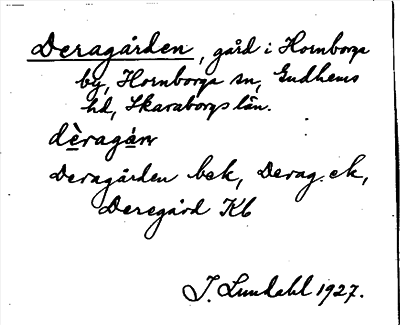 Deragården, gård i Hornborga
by, Hornborga sn, Gudhems
hd, Skaraborgs län.
dèragán
Deragården bek, Derag. ek,
Deregård Kb
I. Lundahl 1927.